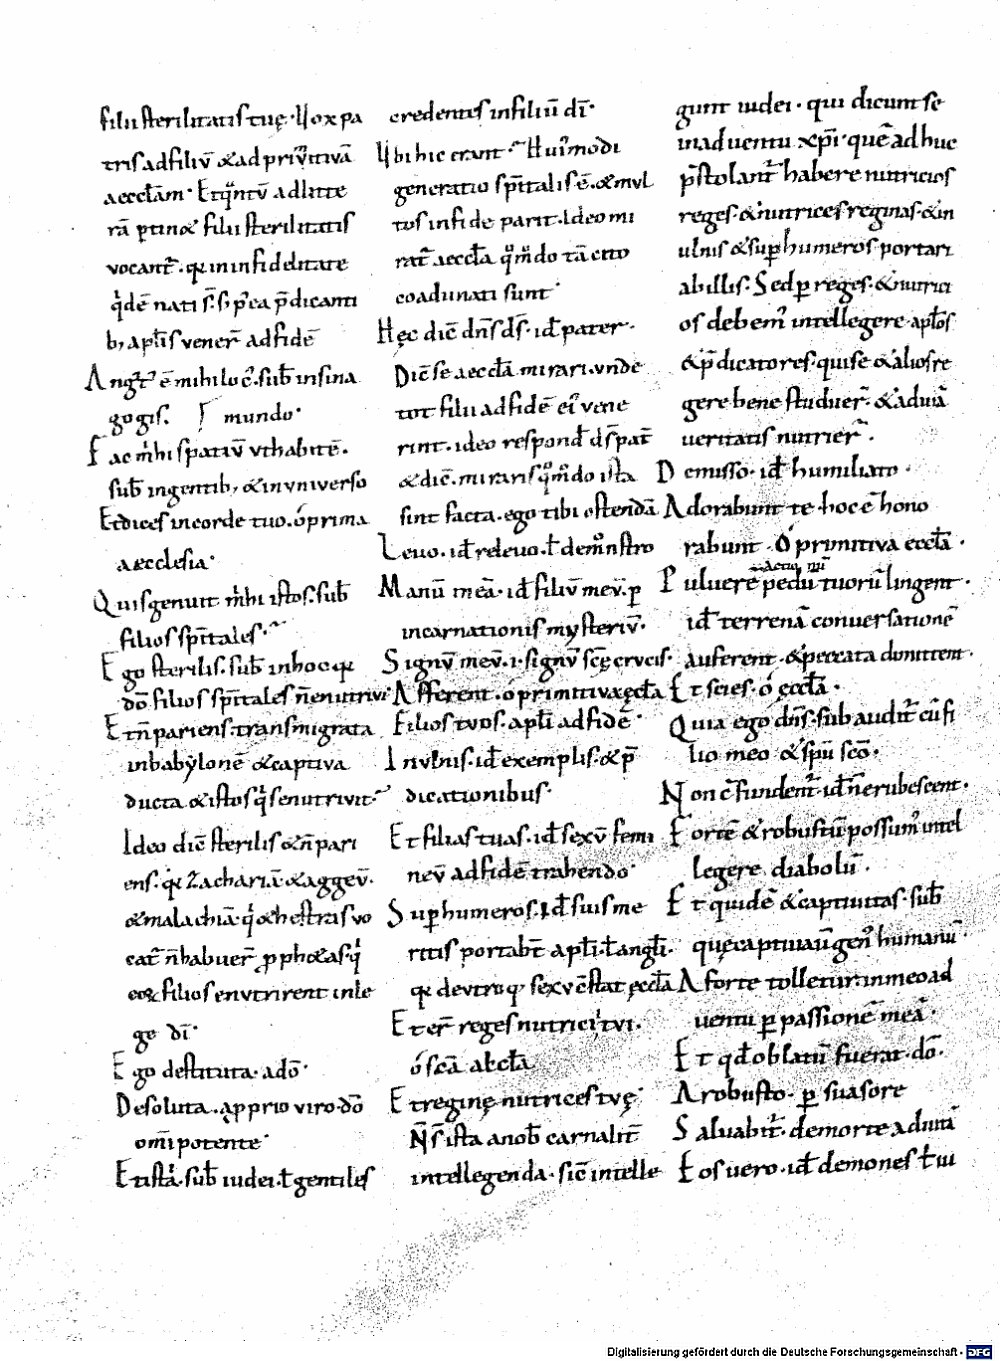 filii sterilitatis tuę. Uox pa
tris ad filiū & ad primitiuā
aecclām. Et q̄ntū ad litte
rā ptin& filii sterilitatis
uocant̄. q̨ in infidelitate
q̇dē nati s̄. s; p̄ ea p̄dicanti
b; apl̄is uener̄ ad fidē
Angust' ē mihi loc'. sub̄ in sina
gogis. mundo.
Fac m̄hi spatiū ut habitē.
sub̄ in gentib; & in uniuerso
Et dices in corde tuo. ó prima
aecclesia.
Quis genuit m̄hi istos. sub̄
filios sp̄itales.
Ego sterilis. sub̄ in hoc q̨
dō filios sp̄itales n̄ enutriui
Et n̄ pariens. transmigrata
in babylonē & captiua
ducta & istos q̇s enutriuit.
Ideo dic̄ sterilis & n̄ pari
ens. q̨ Zachariā & aggeū.
& malachiā. q̇ & hestras uo
cat̄ n̄ habuer̄ pph&as. q̇
eos filios enutrirent in le
ge dī.
Ego destituta. a dō.
Desoluta. a pprio uiro. dō
omīpotente.
Et istā. sub̄ iudei. ł gentiles
credentes in filiū dī.
Ubi hic erant. Hui'modi
generatio sp̄italis ē. & mul
tos in fide parit. Ideo mi
rat̄ aeccl̄a q̊m̊do tā cito
coadunati sunt
Hęc dic̄ dn̄s ds̄. id̄ pater.
Dic̄ se aeccl̄a mirari. unde
tot filii ad fidē ei' uene
rint. ideo respond̄ ds̄ pat̄
& dic̄. miraris q̊m̊do ista
sint facta. ego tibi ostendā
Leuo. id̄ releuo. ł demonstro
Manū meā. id̄ filiū meū. p
incarnationis mysteriū.
Signū meū. i. signū scę crucis.
Afferent. ó primitiua ęccl̄a
Filios tuos. apl̄i ad fidē
In ulnis. id̄ exemplis. & p̄
dicationibus.
Et filias tuas. id̄ sexū femi
neū ad fidē trahendo
Sup humeros. id̄ suis me
ritis portabt̄ apl̄i. ł angl̄i.
q̨ de utroq; sexu c̄stat ęccl̄a
Et er̄ reges nutricii tui.
ó scā aeccl̄a
Et reginę nutrices tuę
N̄ s̄ ista a nob̄ carnalit̄
intellegenda. sic̄ intelle
gunt iudei. qui dicunt se
in aduentu xp̄i. quē adhuc
p̄stolant̄ habere nutricios
reges. & nutrices reginas. & in
ulnis & sup humeros portari
ab illis. Sed p reges. & nutrici
os debem' intellegere. apl̄os
& p̄dicatores. qui se & alios re
gere bene studuer̄. & ad uiā
ueritatis nutrier̄.
Demisso. id̄ humiliato.
Adorabunt te. hoc ē hono
rabunt. Ó primitiua eccl̄a.
Puluerē pedū tuorū lingent.
id̄ terrenā conuersationē
auferent. & peccata dimittent.
Et scies. ó ęccl̄a.
Quia ego dn̄s. sub audit̄ cū fi
lio meo & spū scō.
Non c̄fundent̄. id̄ n̄ erubescent.
Fortē & robustū possum' intel
legere diabolū.
Et quidē & captiuitas. sub̄
quę captiuauit gen' humanū
A forte tolletur. in meo ad
uentu p passionē meā.
Et qd̄ oblatū fuerat. dō.
A robusto. p suasore
Saluabit̄. de morte ad uitā
Eos uero. id̄ demones ł iu